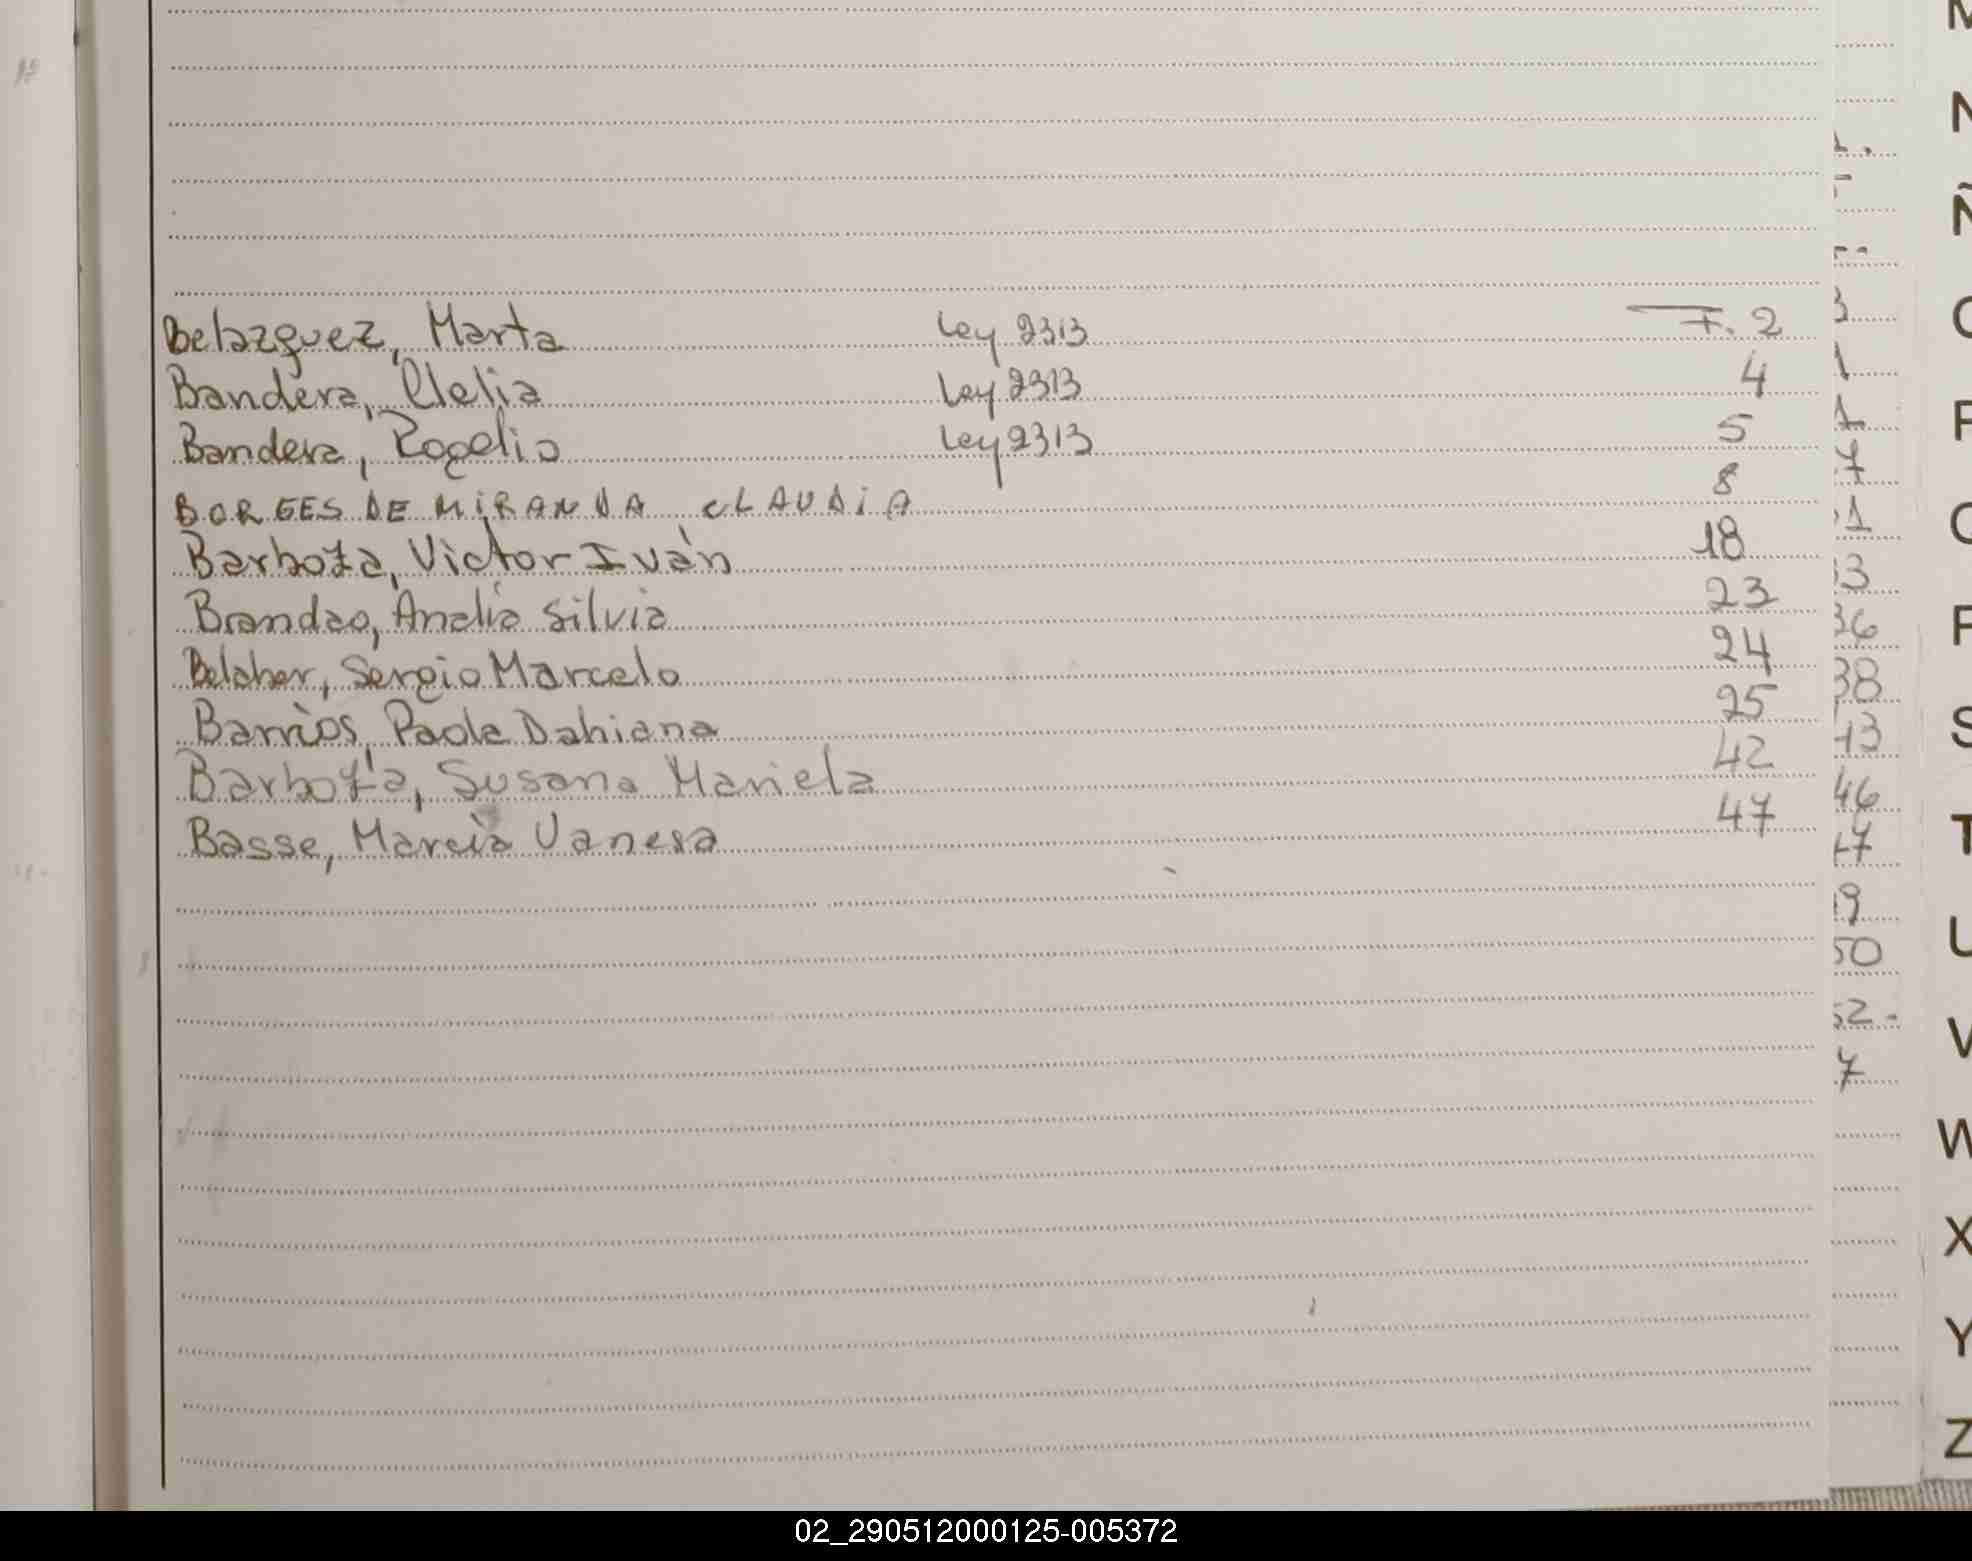 Belazquez, Marta Ley 2313 F. 2
Bandera, Clelia Ley 2313 4
Bandera, Rogelio Ley 2313 5
BORGES DE MIRANDA CLAUDIA 8
Barboza, Victor Iván 18
Brandao, Analia Silvia 23
Belcher, Sergio Marcelo 24
Barrios, Paola Dahiana 25
Barboza, Susana Mariela 42
Basse, Marcia Vanesa 47
N
Ñ
S
T
U
V
W
X
Y
Z
02_290512000125-005372